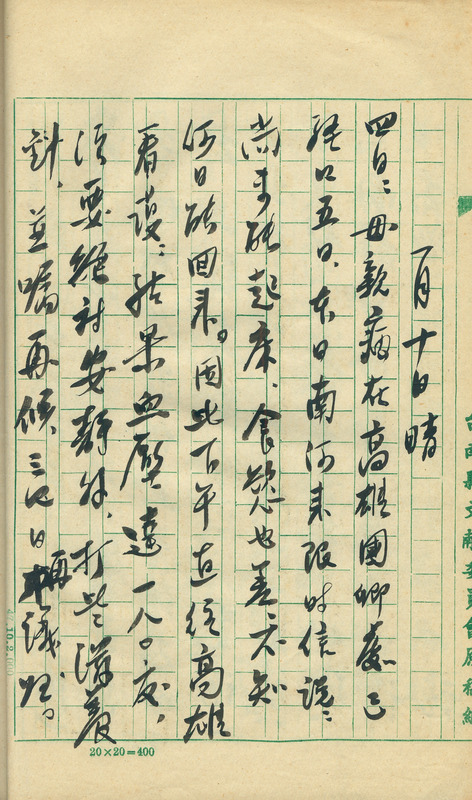 一月十日晴
四日:母親病在高雄國卿處已
經五日,本日南河來限時信說:
尚未能起床,食慾也差,不知
何日能回來。因此下午直往高雄
看護:結果血壓達一八〇度,
須要絕對安靜外,打些滋養
針,並囑再候三四日再
台南縣文獻委員會原稿紙
20×20=400